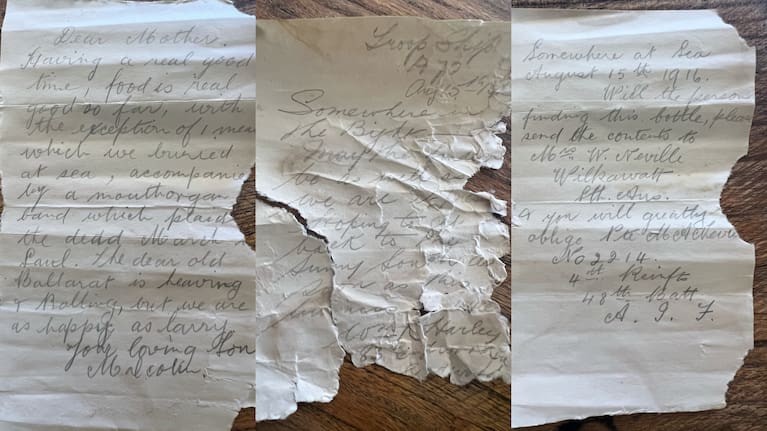 Dear Mother.
Having a real good
time, food is real
good so far, with
the exception of 1 mea
which we buried
at sea, accompanie
by a mouthorgan
band which placed
the dead March i
Saul. The dear old
Ballarat is heaving
& Rolling, but we are
as happy as larry.
Your loving Son
Malcolm.
Troop Ship
A70
Somewhere
the Bight
may the
be
we are
hoping to
back to the
Sunny
Soon as
Harley
Somewhere at Sea
August 15th 1916.
Will the person
finding this bottle, pleas
send the contents to
Mrs W. Neville
Wilkawatt
Sth. Aus.
& you will greatly
oblige Pte
No 2214.
4st Reinfts
48th Batt
A. I. F.